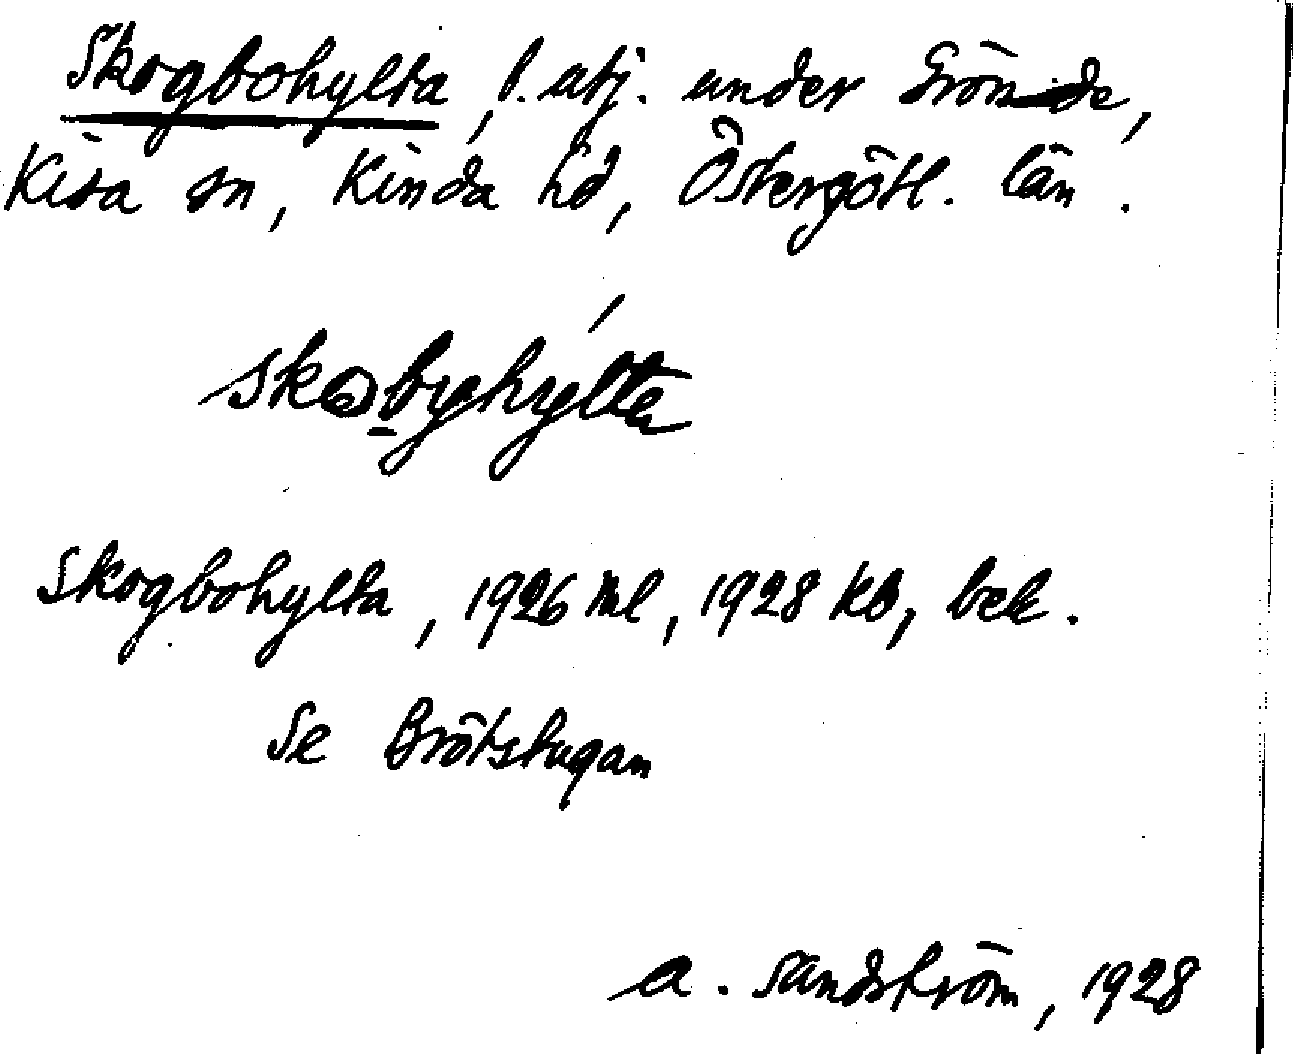 Skogbohylta, l. utj. under Grönede,
Kisa sn, Kinda hd, Östergötl. län.
Skogbohylta, 1926 ml, 1928 kb, bek.
Se Brötstugan
A. Sandström, 1928